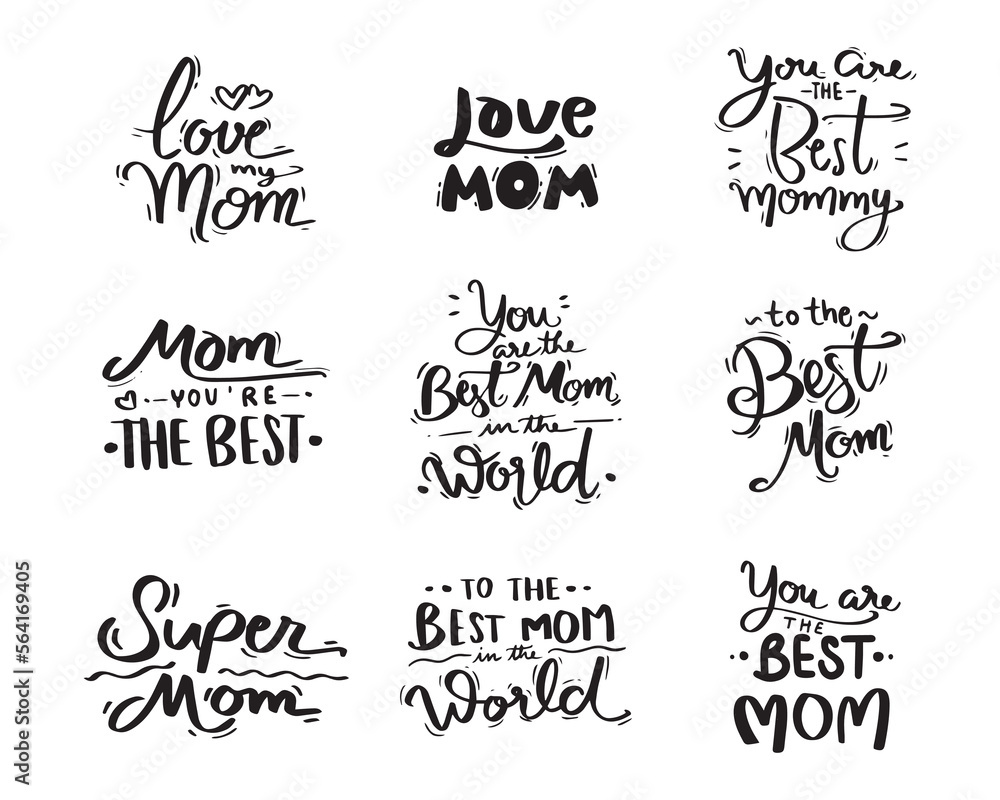 love
my
Mom
Love
MOM
You are
THE
Best
mommy
Mom
YOU'RE
THE BEST
You
are the
Best Mom
in the
World
to the
Best
Mom
Super
Mom
TO THE
BEST MOM
in the
World
You are
THE
BEST
MOM
Adobe Stock | #564169405
Adobe Stock